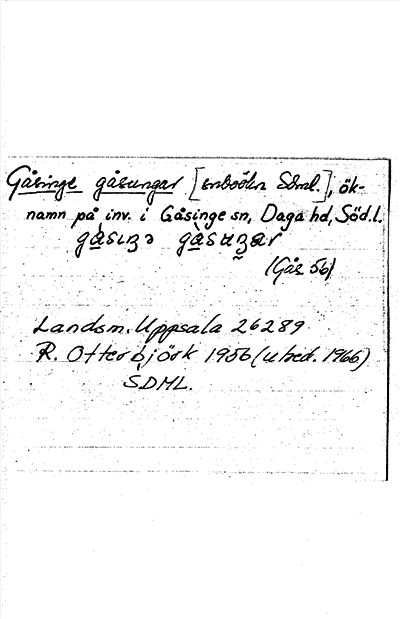 Gåsinge gåsungar [snboökn Sdml.], ök-
namn på inv. i Gåsinge sn, Daga hd, Söd.l.
gåsıŋə gåsuŋar
(Gås 56)
Landsm. Uppsala 26289
R. Otterbjörk 1956 (utied. 1966)
SDML.